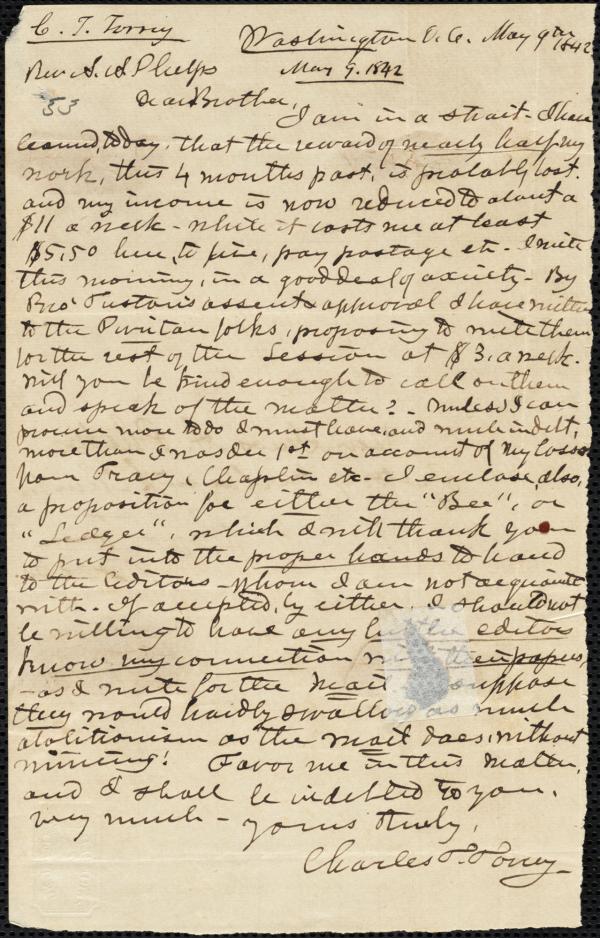 C. T. Torrey
Washington D. C. May 9th 1842
Rev. A. A Phelps
May 9. 1842
53
Dear Brother,
I am in a strait. I have
learned, today, that the reward of nearly half my
work, this 4 months past, is probably lost.
and my income is now reduced to about a
$11 a week - while it costs me at least
$5,50 here, to live, pay postage etc - I write
this morning, in a good deal of anxiety - By
Bro' assent & approval I have written
to the Puritan folks, proposing to write them
for the rest of the Session at $3. a week.
Will you be kind enough to call on them
and speak of the matter? - Unless I can
procure more to do I must leave, and much in debt,
more than I was Dec 1st on account of my losses
from Tracy, Chaplin etc - I enclose, also,
a proposition for either the "Bee", or
"Ledger", which I will thank you
to put into the proper hands to hand
to the Editors - whom I am not acquainted
with - If accepted, by either, I should not
be willing to have any but the editors
know my connection with their papers,
- as I write for the Mail I suppose
they would hardly swallow as much
abolitionism as the Mail does, without
wincing! Favor me in this matter,
and I shall be indebted to you,
very much - yours truly,
Charles T. Torrey -